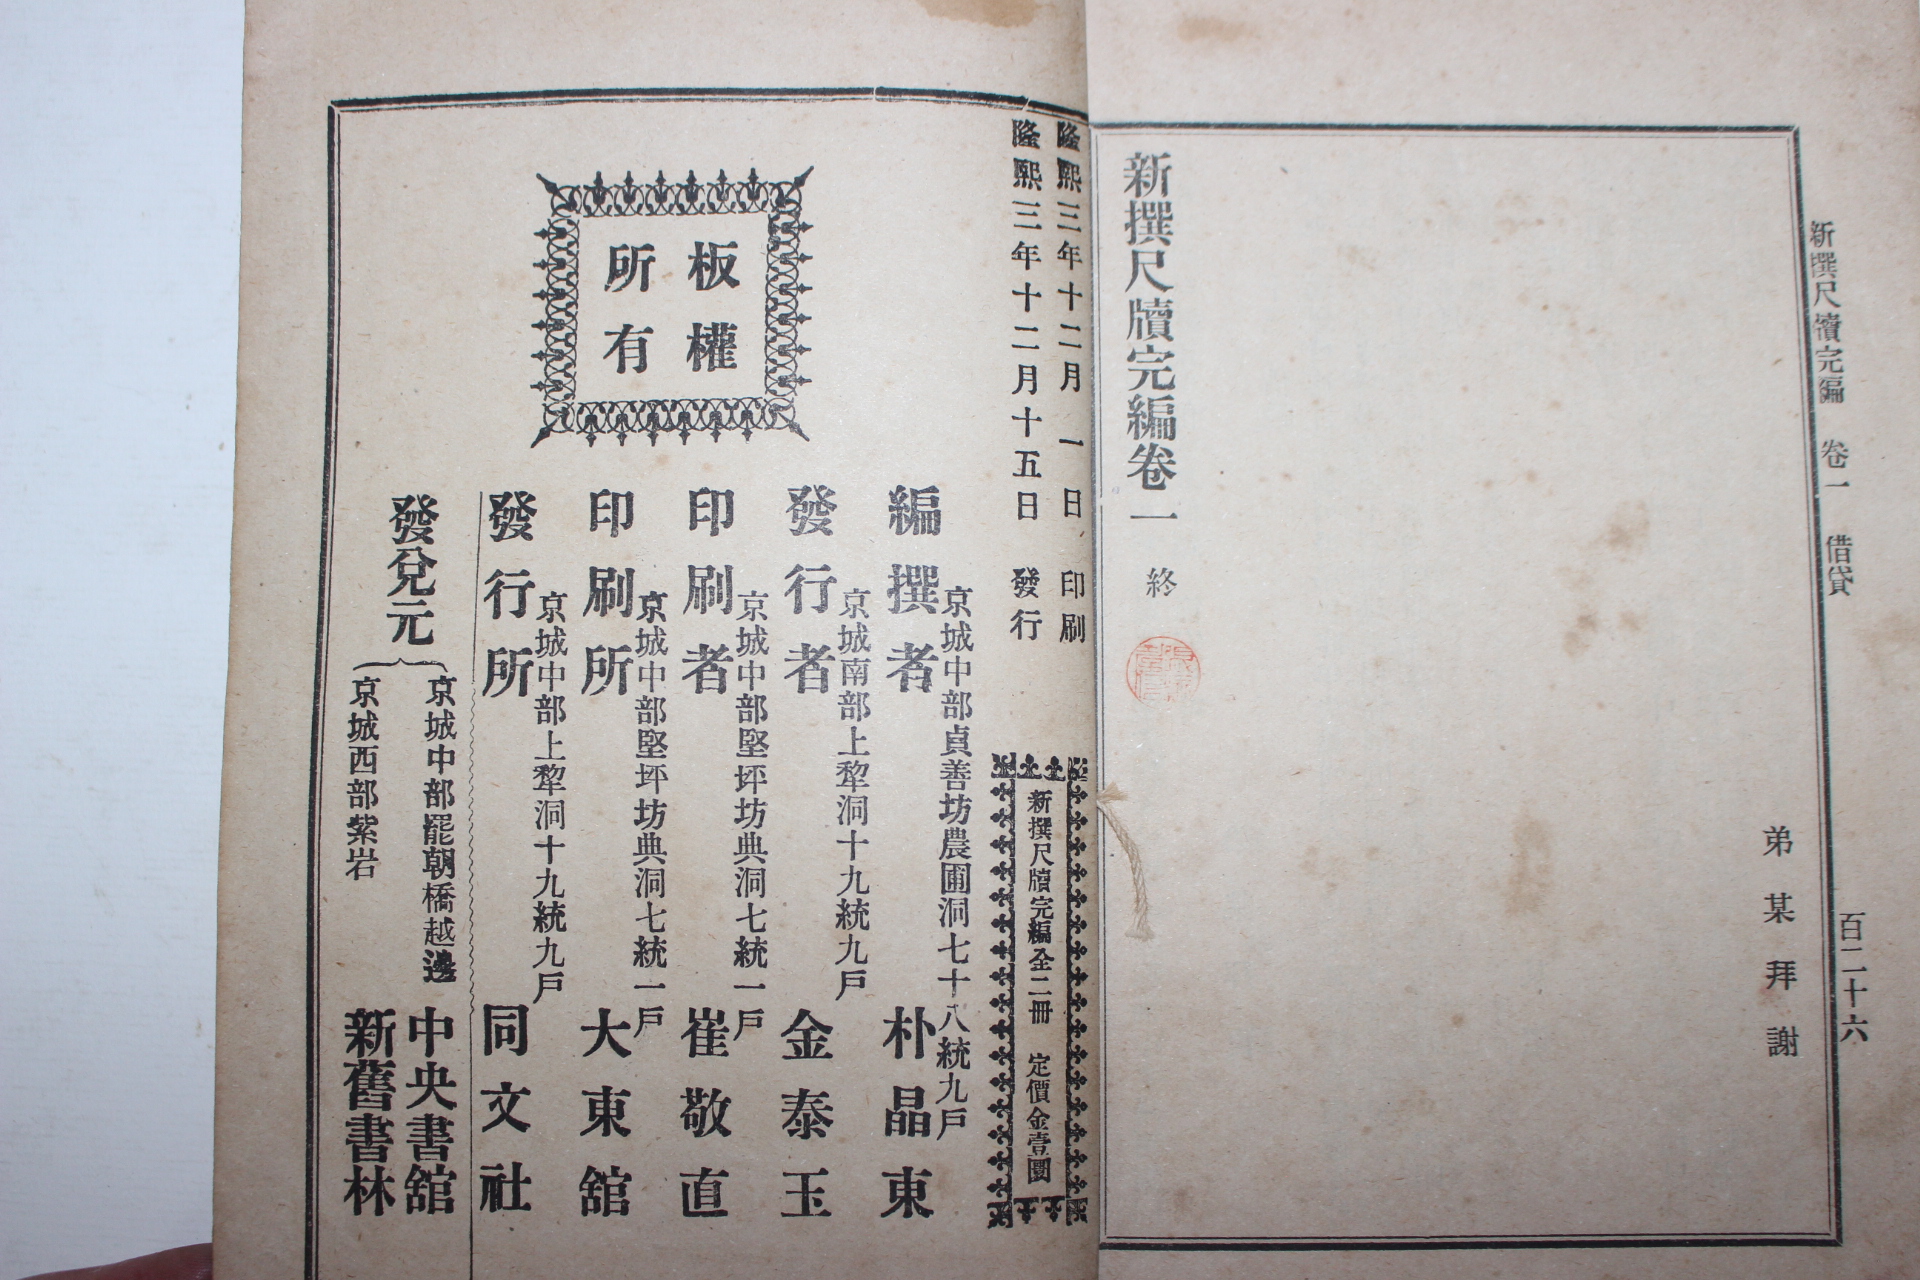 新撰尺牘完編　卷一　借貸　百二十六
弟某拜謝
新撰尺牘完編卷一　終
隆熙三年十二月一日　印刷
隆熙三年十二月十五日　發行
新撰尺牘完編全二冊　定價金壹圜
板權
所有
京城中部貞善坊農圃洞七十八統九戶
編撰者　朴晶東
京城南部上犂洞十九統九戶
發行者　金泰玉
京城中部堅坪坊典洞七統一戶
印刷者　崔敬直
京城中部堅坪坊典洞七統一戶
印刷所　大東舘
京城中部上犂洞十九統九戶
發行所　同文社
發兌元
京城中部罷朝橋越邊　中央書舘
京城西部紫岩　新舊書林